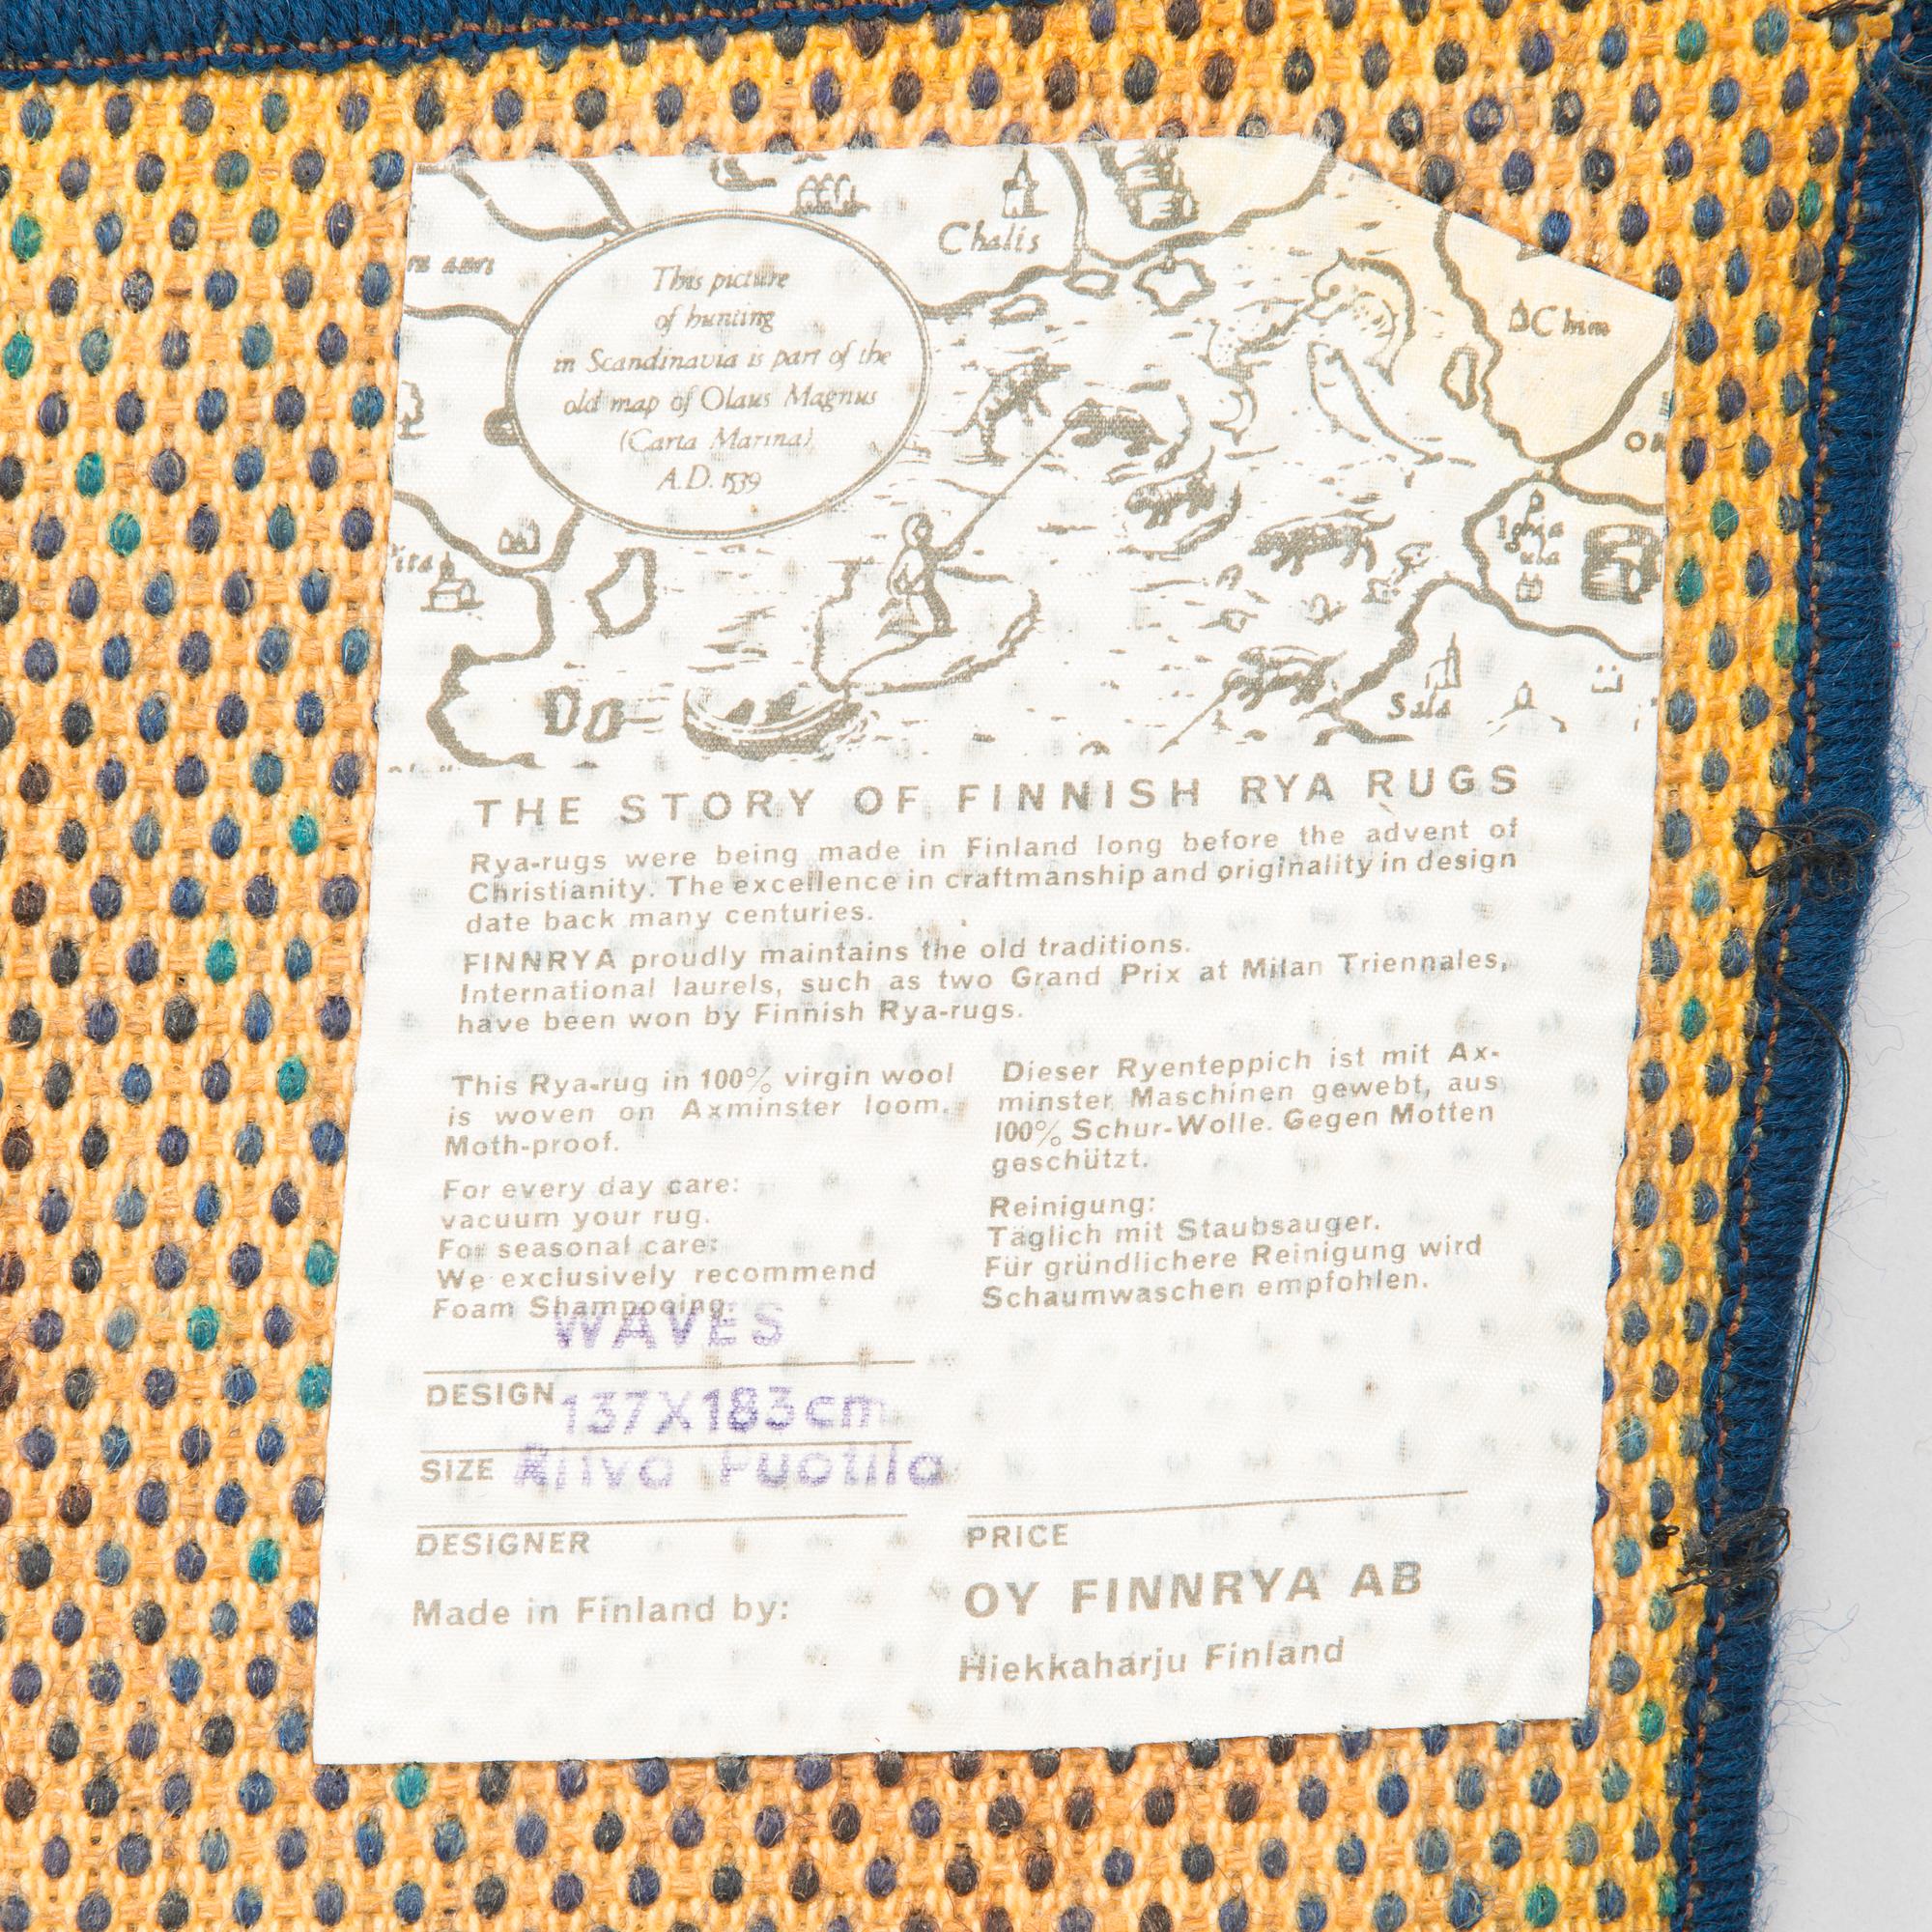 Chalis
This picture
of hunting
in Scandinavia is part of the
old map of Olaus Magnus
(Carta Marina)
A.D. 1539
Sala
THE STORY OF FINNISH RYA RUGS
Rya-rugs were being made in Finland long before the advent of
Christianity. The excellence in craftmanship and originality in design
date back many centuries.
FINNRYA proudly maintains the old traditions.
International laurels, such as two Grand Prix at Milan Triennales,
have been won by Finnish Rya-rugs.
This Rya-rug in 100% virgin wool
is woven on Axminster loom.
Moth-proof.
For every day care:
vacuum your rug.
For seasonal care:
We exclusively recommend
Foam Shampooing.
Dieser Ryenteppich ist mit Ax-
minster Maschinen gewebt, aus
100% Schur-Wolle. Gegen Motten
geschützt.
Reinigung:
Täglich mit Staubsauger.
Für gründlichere Reinigung wird
Schaumwaschen empfohlen.
WAVES
DESIGN
137X183cm
SIZE
Ritva Puotila
DESIGNER
PRICE
Made in Finland by:
OY FINNRYA AB
Hiekkaharju Finland